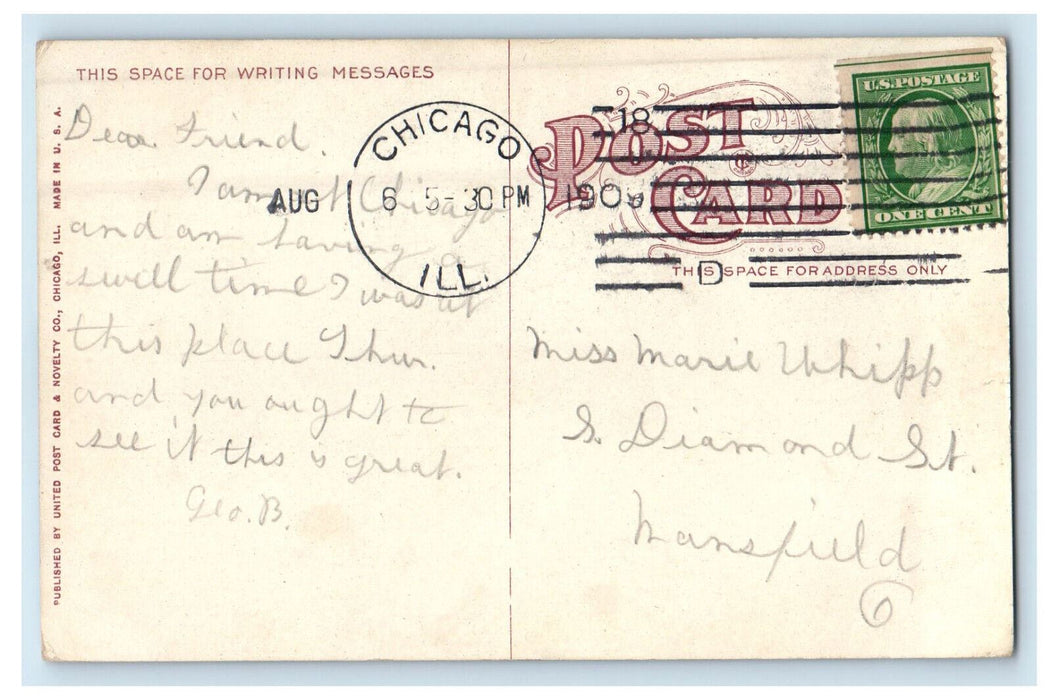 THIS SPACE FOR WRITING MESSAGES
Dear Friend.
I am at Chicago
and am having a
swell time I was at
this place Thur.
and you ought to
see it this is great.
Geo. B.
PUBLISHED BY UNITED POST CARD & NOVELTY CO., CHICAGO, ILL. MADE IN U. S. A.
CHICAGO
AUG 6 5-30 PM 1909
ILL.
18
D
POST
CARD
THIS SPACE FOR ADDRESS ONLY
U.S. POSTAGE
ONE CENT
Miss Marie Whipp
S. Diamond St.
Mansfield
O